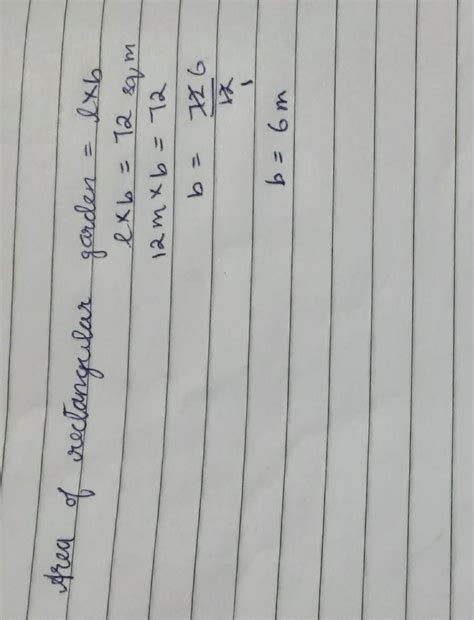 Area of rectangular garden = l×b
l×b = 72 sq,m
12m×b = 72
b = 72 6
12 1
b = 6m